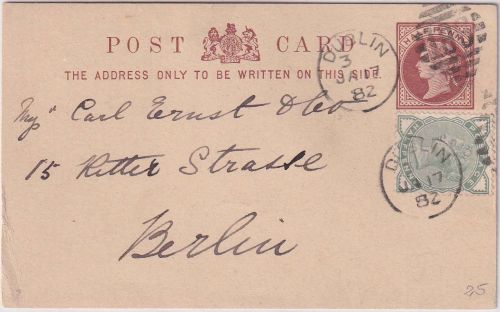 POST CARD
THE ADDRESS ONLY TO BE WRITTEN ON THIS SIDE.
DUBLIN
3
JA 17
82
Mess^rs Carl Ernst & Co
15 Ritter Strasse
DUBLIN
3
17
82
Berlin
25